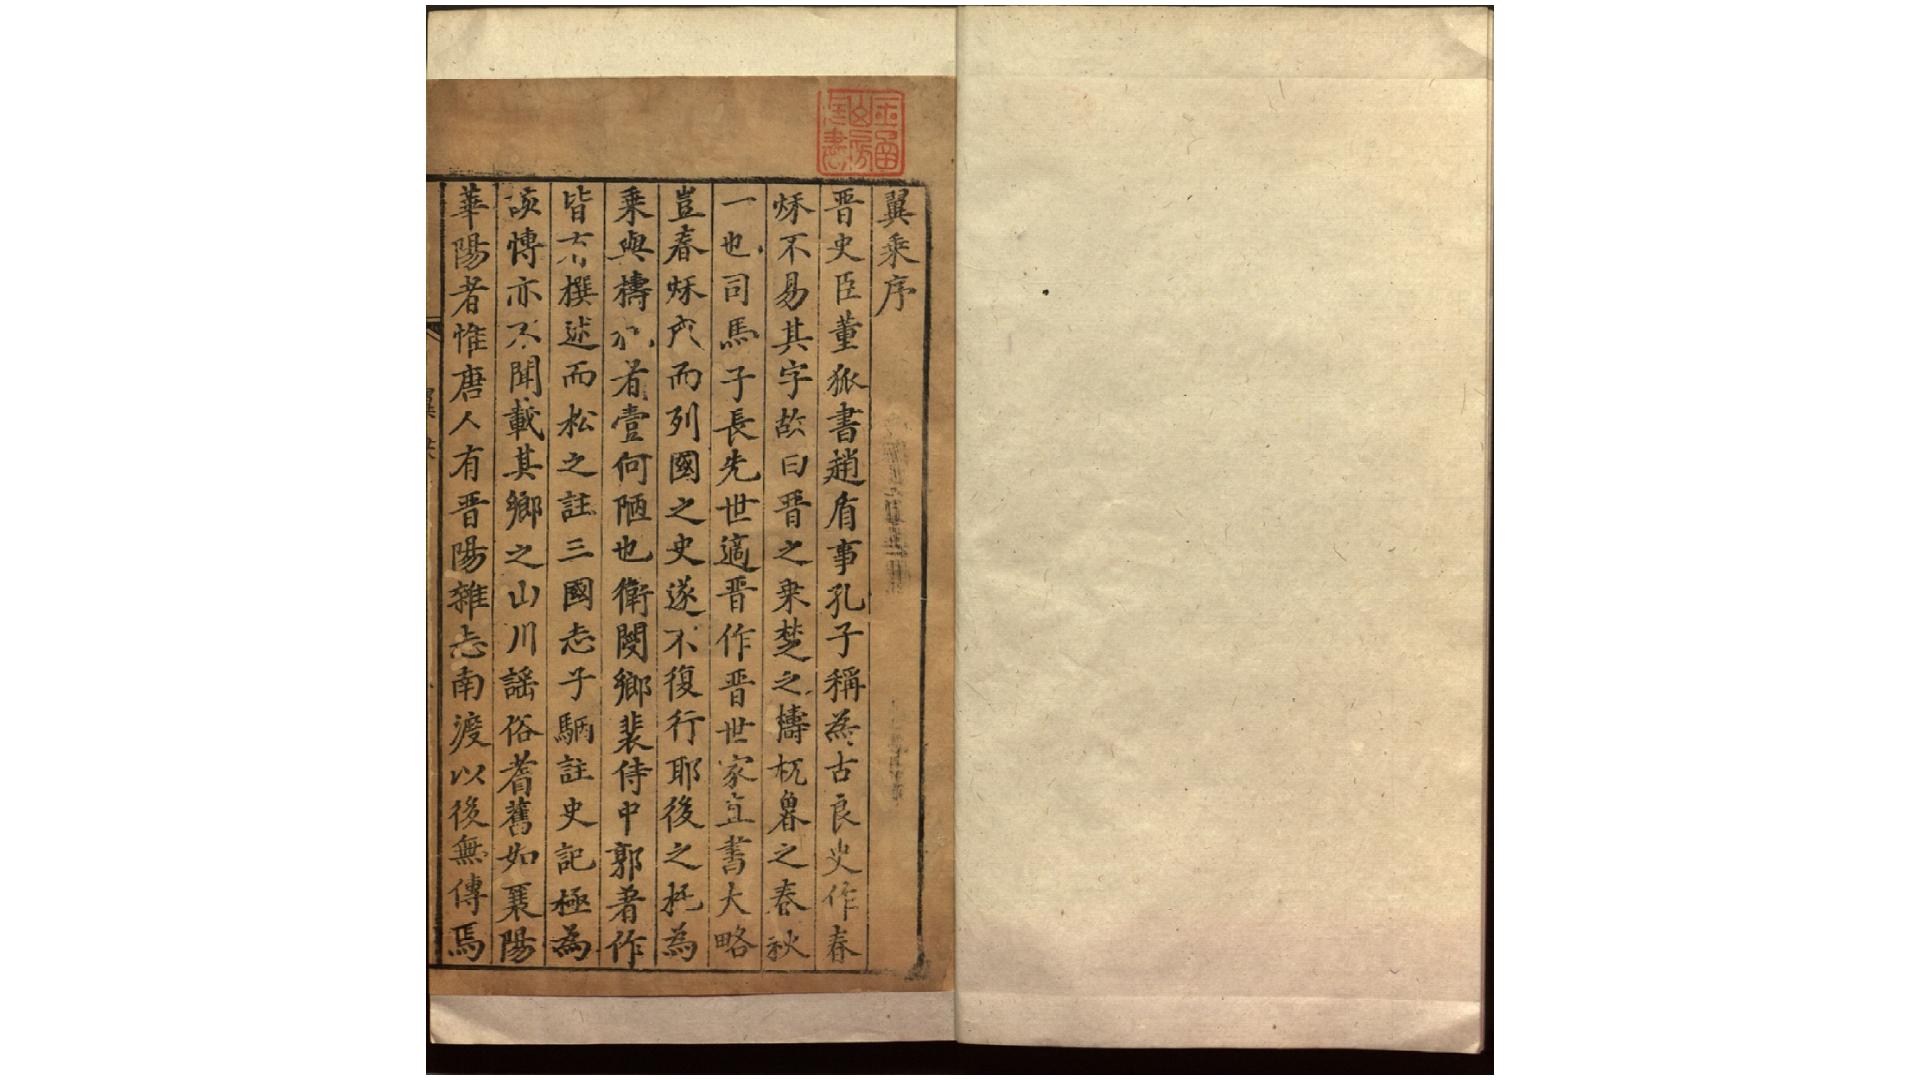 翼乘序
晉史臣董狐書趙盾事孔子稱為古良史作春
秌不易其字故曰晉之乗楚之檮杌魯之春秋
一也司馬子長先世適晉作晉世家立書大略
豈春秌而列國之史遂不復行耶後之托為
乗與檮者壹何陋也衛閿鄉裴侍中郭著作
皆有撰述而松之註三國志子駰註史記極為
該愽亦不聞載其鄉之山川謡俗耆舊如襄陽
華陽者惟唐人有晋陽雜志南渡以後無傳焉